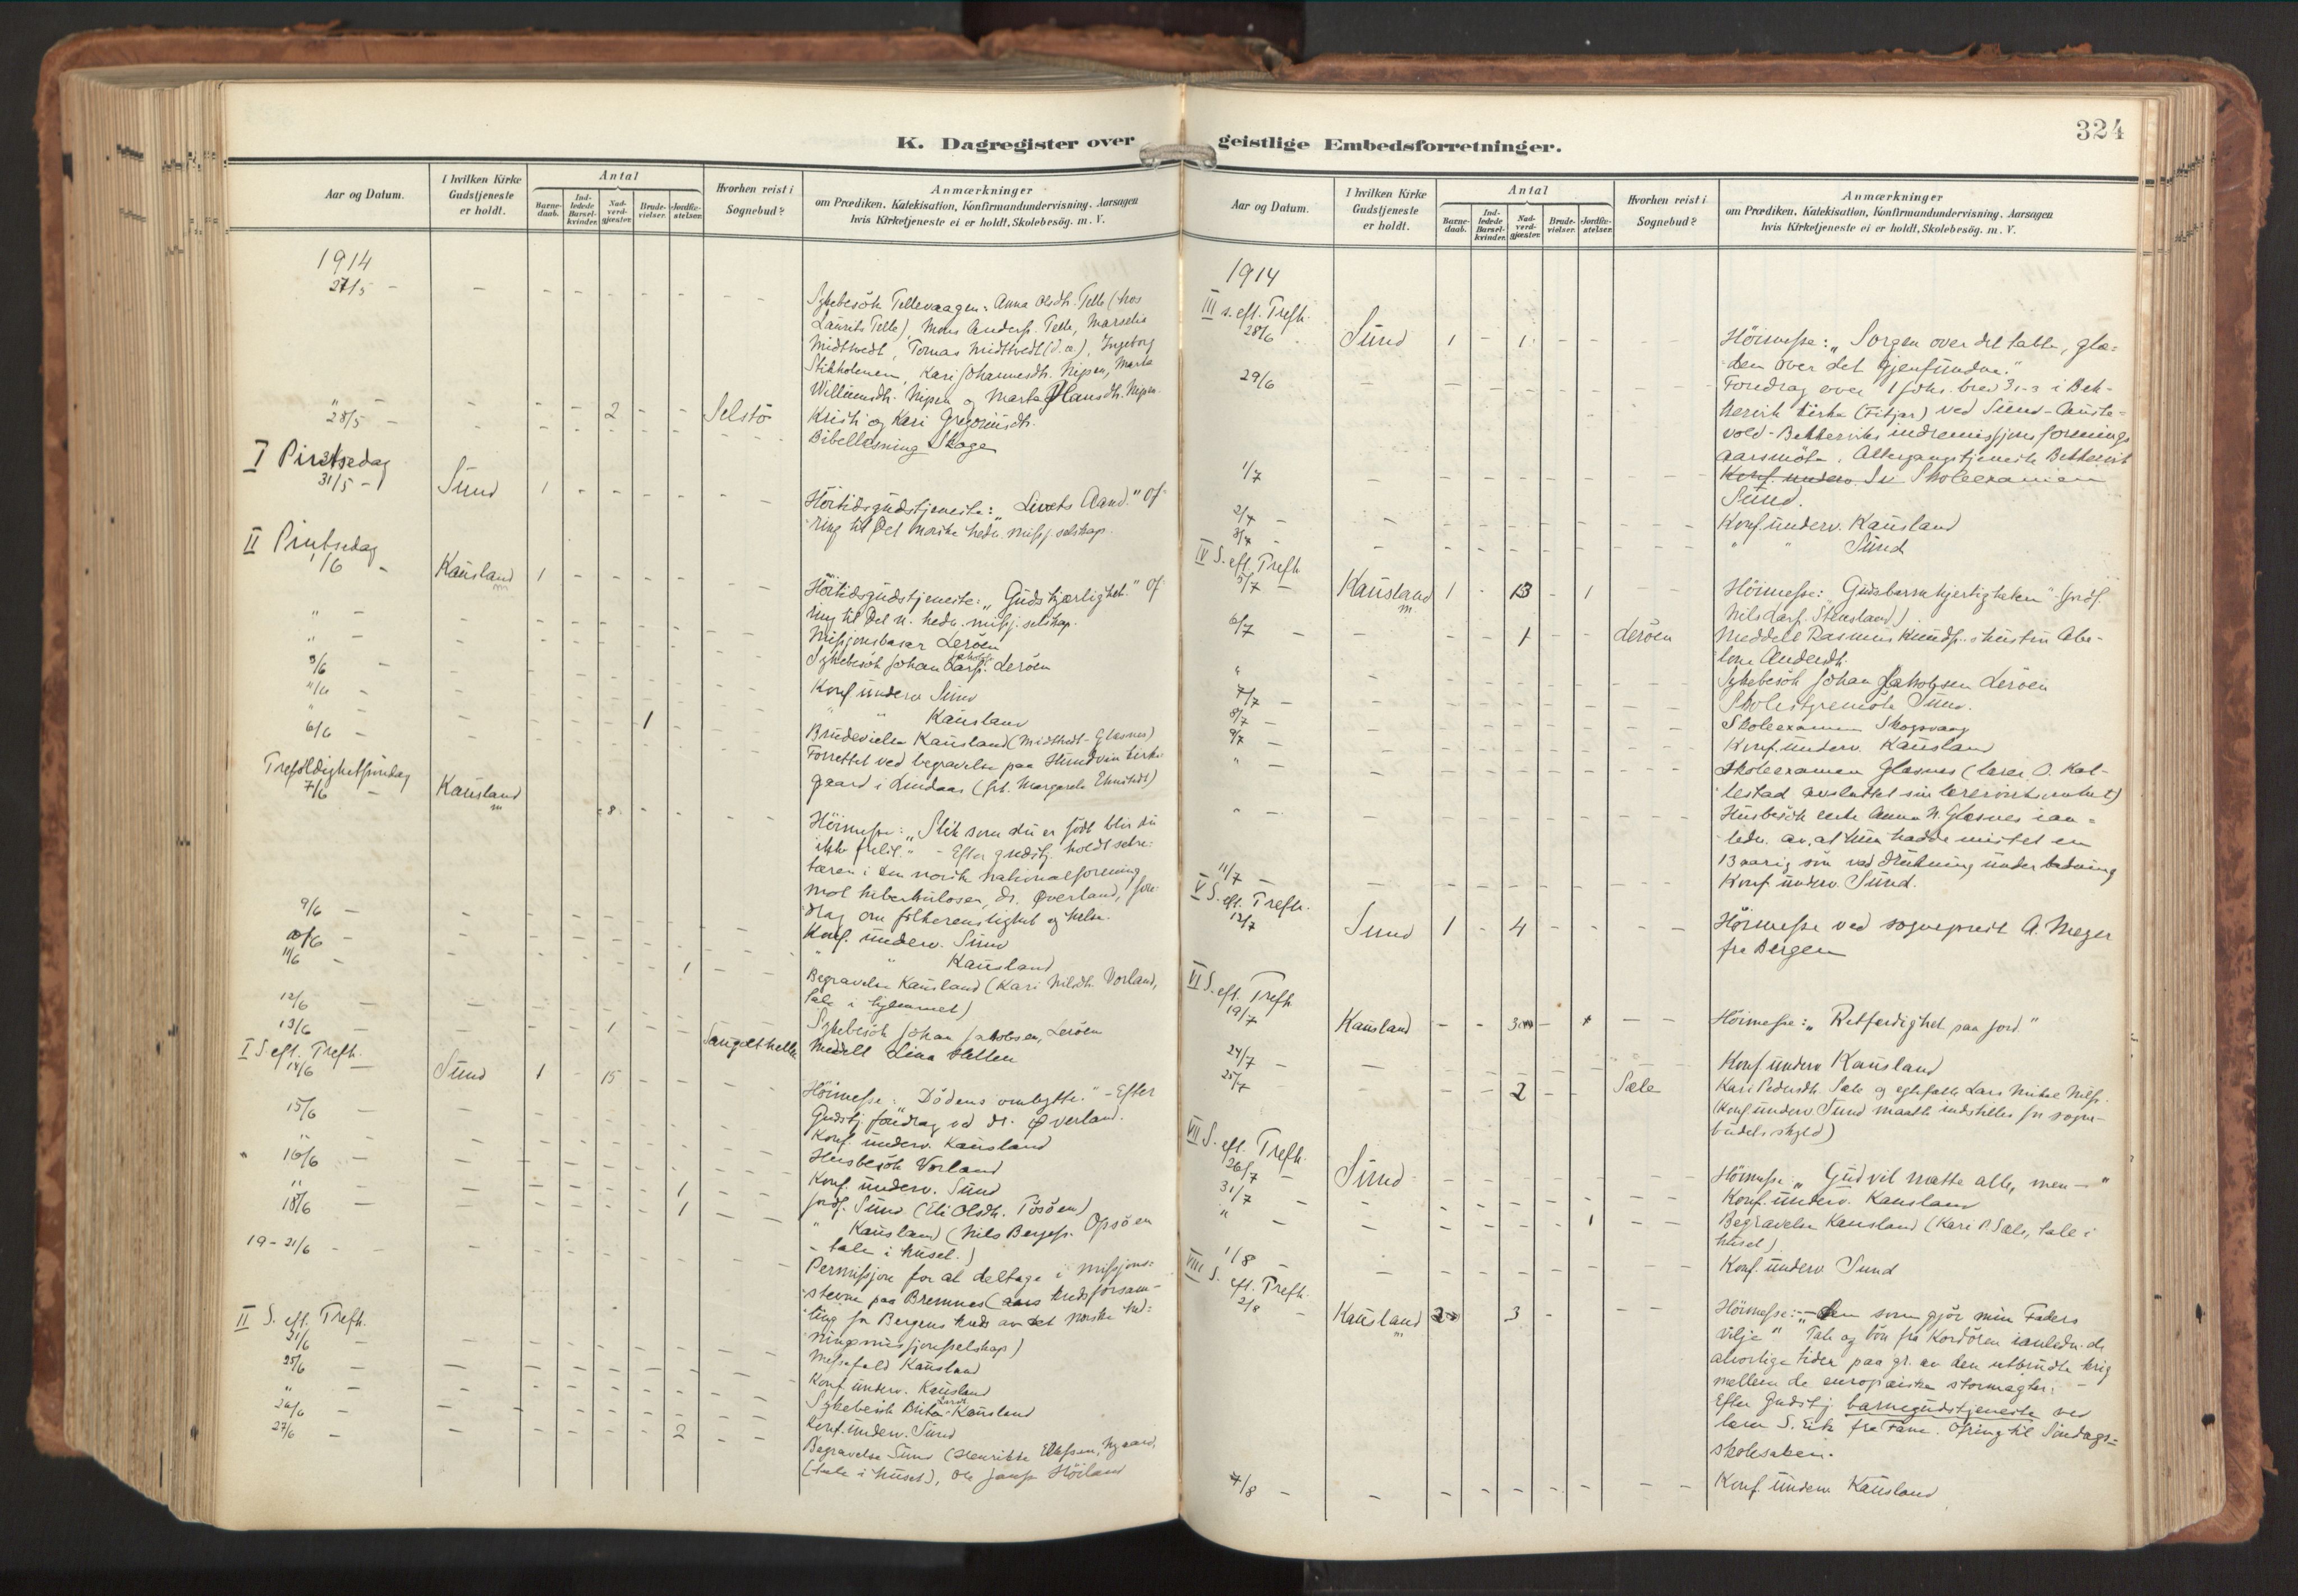 324
K. Dagregister over
geistlige Embedsforretninger.
Aar og Datum.
I hvilken Kirke
Gudstjeneste
er holdt.
Antal
Barne-
daab.
Ind-
ledede
Barsel-
kvinder.
Nad-
verd-
gjæster.
Brude-
vielser.
Jordfæ-
stelser.
Hvorhen reist i
Sognebud?
Anmærkninger
om Prædiken, Katekisation, Konfirmandundervisning. Aarsagen
hvis Kirketjeneste ei er holdt, Skolebesög. m. V.
1914
27/5 -
Sykebesök Tellevaagen: Anna Olsdtr. Telle (hos
Laurits Telle), Mons Anderss. Telle, Marselis
Midttvedt, Tomas Midttvedt (d.æ.), Ingeborg
Stikholmen, Kari Johannesdtr. Nipen, Marta
Willumsdtr. Nipen og Marta Hansdtr. Nipen.
" 2 Selstö Kristi og Kari Gregoriusdtr.
28/5 - Bibellæsning Skoge
I Pintsedag
31/5 - Sund 1 Höitidsgudstjeneste: "Livets Aand." Of-
ring til Det norske hedn. missj. selskap.
II Pintsedag
1/6 - Kausland 1 Höitidsgudstjeneste: "Guds kjærlighet." Of-
ring til Det n. hedn. missj. selskap.
" - Missjonsbasar Leröen
" - Sykebesök Johan Leröen
3/6 - Konf. underv. Sund
4/6 - " " Kausland
" - 1 Brudevielse Kausland (Midttvedt - Glesnes)
6/6 - Forrettet ved begravelse paa Hundvin kirke-
gaard i Lindaas (frk. Margarete)
Trefoldighetssöndag
7/6 - Kausland 8
Höimesse: "Slik som du er født blir du
ikke frelst." - Efter gudstj. holdt sekre-
tæren i den norske nationalforening
mot tuberkulosen, dr. Øverland, fore-
drag om folkerenslighet og helse.
9/6 - Konf. underv. Sund
10/6 - " " Kausland
11/6 - 1 Begravelse Kausland (Kari Nilsdtr. Vorland,
tale i hjemmet)
12/6 - Sykebesök Johan Jakobsen, Leröen
13/6 - 1 Sangolthella Meddelt Lina Hellen
I S. eft. Trefh.
14/6 - Sund 1 - 15 Höimesse: "Dödens ombytte." - Efter
Gudstj. foredrag ved dr. Øverland.
15/6 - Konf. underv. Kausland
" Husbesök Vorland
16/6 - Konf. underv. Sund
" 1 Jordf. Sund (Eli Olsdtr. Tösöen)
18/6 - 1 " Kausland (Nils Bergess. Opsöen
- tale i huset.)
19-21/6 - Permissjon for at deltage i missjons-
stevne paa Bremnes (aars kredsforsam-
ling for Bergens kreds av det norske hed-
ningmissjonsselskap)
II S. eft. Trefh.
21/6 - Messefald Kausland
25/6 - Konf. underv. Kausland
" - Sykebesök Brita Kausland
26/6 - Konf. underv. Sund
27/6 - 2 Begravelse Sund (Henrikke Ellefsen, Nygaard,
(tale i huset), Ole Höiland
Aar og Datum.
I hvilken Kirke
Gudstjeneste
er holdt.
Antal
Barne-
daab.
Ind-
ledede
Barsel-
kvinder.
Nad-
verd-
gjæster.
Brude-
vielser.
Jordfæ-
stelser.
Hvorhen reist i
Sognebud?
Anmærkninger
om Prædiken, Katekisation, Konfirmandundervisning. Aarsagen
hvis Kirketjeneste ei er holdt, Skolebesög. m. V.
1914
III s. eft. Trefh.
28/6 Sund 1 - 1 Höimesse: "Sorgen over det tabte, glæ-
den over det gjenfundne."
29/6 Foredrag over 1 Johs. brev 3 1-3 i Bek-
kervik kirke (Fitjar) ved Sund - Auste-
vold - Bekkerviks indremissjonsforenings
aarsmöte. Altergangstjeneste Bekkervik
1/7 Konf. underv. Su Skoleexamen
Sund.
2/7 - Konf. underv. Kausland
3/7 - " " Sund
IV S. eft. Trefh
5/7 - Kausland 1 - 13 - 1 Höimesse: "Gudsbarmhjertigheten" (jordf.
Nils Larss. Steusland)
6/7 - 1 Leröen Meddelt Rasmus Knudss. hustru Abe-
lone Andersdtr.
" Sykebesök Johan Jakobsen Leröen
7/7 - Skolestyremöte Sund.
8/7 - Skoleexamen Skogsvaag
9/7 - Konf. underv. Kausland
" - Skoleexamen Glesnes (lærer O. Kal-
lestad avsluttet sin lærervirksomhet)
" - Husbesök enke Anna N. Glesnes ian-
ledn. av, at hun hadde mistet en
13 aarig søn ved drukning under badning
11/7 - Konf. underv. Sund.
V S. eft. Trefh.
12/7 Sund 1 - 4 Höimesse ved sogneprest A. Meyer
fra Bergen
VI S. eft. Trefh
19/7 Kausland Höimesse: "Retfærdighet paa jord"
24/7 - Konf. underv Kausland
25/7 2 Sæle Kari Pedersdtr. Sæle og egtefælle Lars Mikal Nilss.
(Konf. underv. Sund maatte indstilles for sogne-
budets skyld)
VII S. eft. Trefh.
26/7 - Sund Höimesse: "Gud vil mætte alle, men -"
31/7 - Konf. underv. Kausland
" - 1 Begravelse Kausland (Kari P. Sæle, tale i
huset)
1/8 - Konf. underv Sund
VIII S. eft. Trefh.
2/8 - Kausland 2 3 Höimesse: "- den som gjör min Faders
vilje" Tale og bön fra Kordören ianledn. de
alvorlige tider paa gr. av den utbrudte krig
mellem de europæiske stormagter. -
Efter Gudstj. barnegudstjeneste ved
lærer S. Eik fra Fane. Ofring til Söndags-
skolesaken.
7/8 - Konf. underv. Kausland